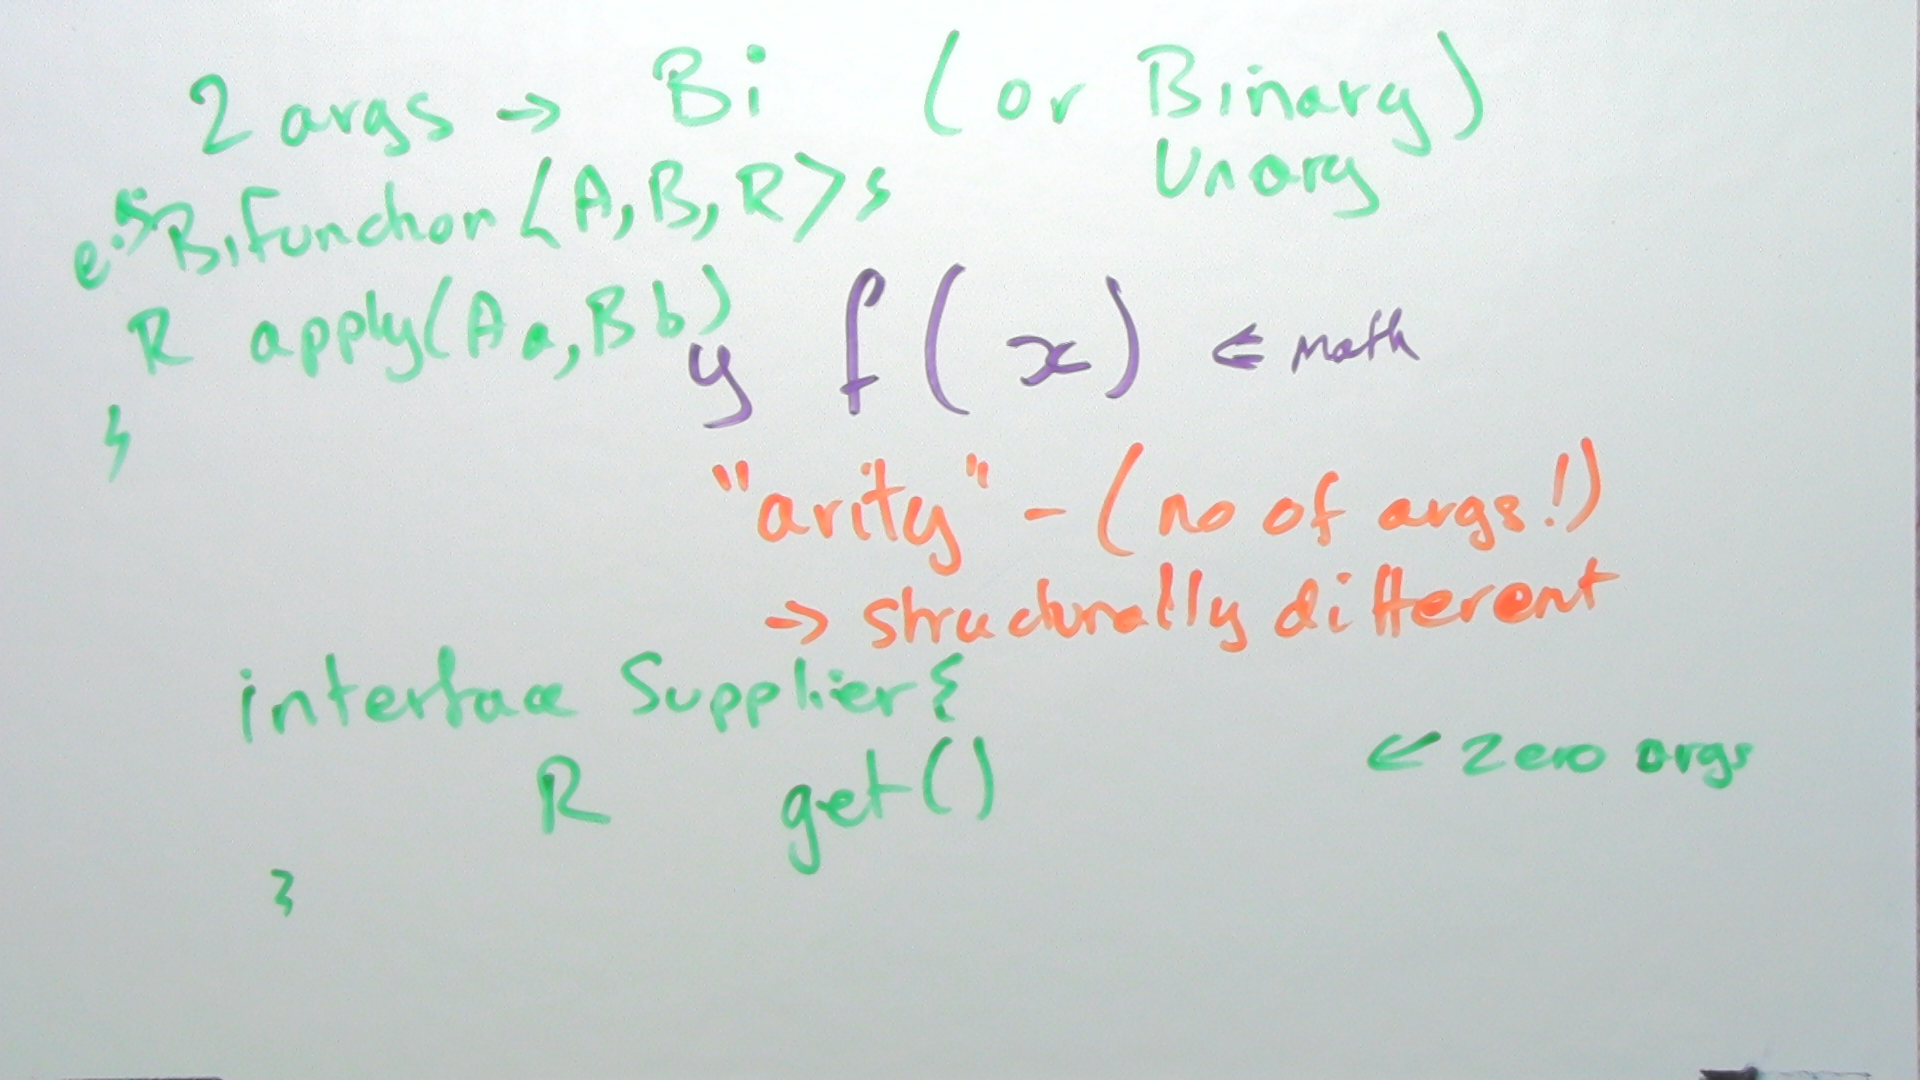 2 args → Bi (or Binary)
Unary
e.g. Bifunction<A, B, R>{
R apply(A a, B b)
}
y f(x) ⇐ math
"arity" - (no of args!)
→ structurally different
interface Supplier{
← zero args
R get()
}